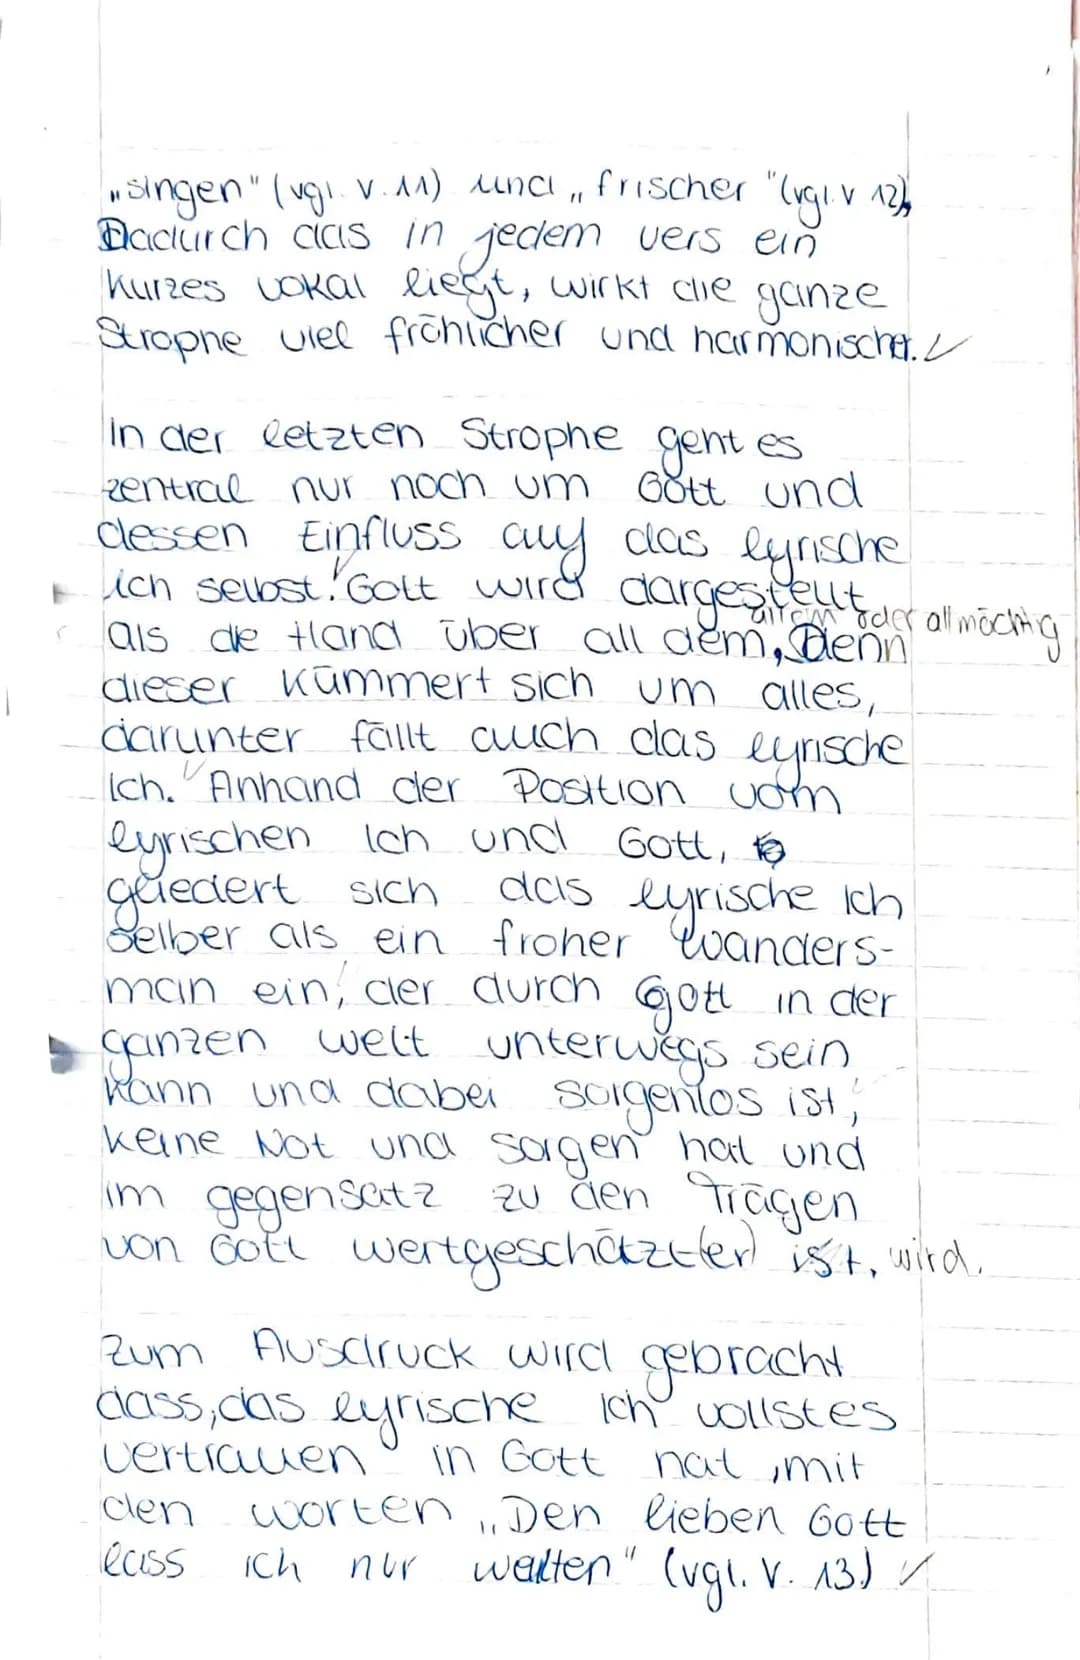 „singen" (vgl. V. 11) und „frischer" (vgl. V 12),
Dadurch das in jedem vers ein
kurzes vokal liegt, wirkt die ganze
Strophe viel fröhlicher und harmonischer.
In der letzten Strophe geht es
zentral nur noch um Gott und
dessen Einfluss auf das lyrische
ich selbst. Gott wird dargestellt
allem oder allmächtig
als die Hand über all dem, Denn
dieser kümmert sich um alles,
darunter fällt auch das lyrische
Ich. Anhand der Position vom
lyrischen Ich und Gott,
gliedert sich das lyrische Ich
selber als ein froher wanders-
man ein, der durch Gott in der
ganzen welt unterwegs sein
kann und dabei sorgenlos ist,
keine Not und sorgen hat und
im gegensatz zu den Trägen
von Gott wertgeschätzt(er) ist, wird.
Zum Ausdruck wird gebracht
dass, das lyrische Ich vollstes
vertrauen in Gott hat, mit
den worten „Den lieben Gott
lass ich nur walten" (vgl. V. 13)